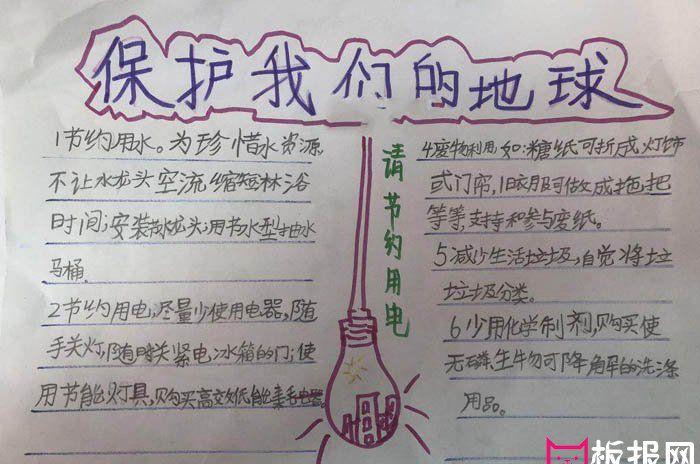 保护我们的地球
1节约用水。为珍惜水资源,
不让水龙头空流,缩短林浴
时间;安装节水龙头;用节水型抽水
马桶。
2节约用电;尽量少使用电器,随
手关灯,随时关紧电冰箱的门;使
用节能灯具,购买高效低能耗电器
请节约用电
4废物利用,如:糖纸可折成灯饰
或门帘,旧衣服可做成拖把
等等,支持和参与废纸。
5减少生活垃圾,自觉将垃
垃圾分类。
6少用化学制剂,购买使
无磷、生物可降解的洗涤
用品。
板报网